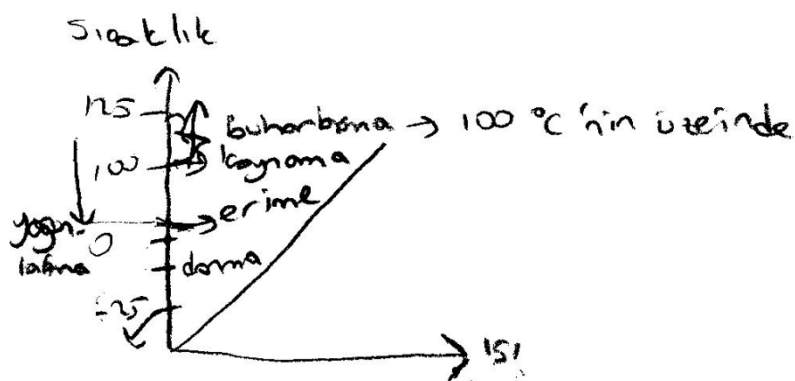 Sıcaklık
125
buharlaşma → 100 °C 'nin üzeinde
100
kaynama
erime
yoğun-
laşma
0
donma
-25
ısı